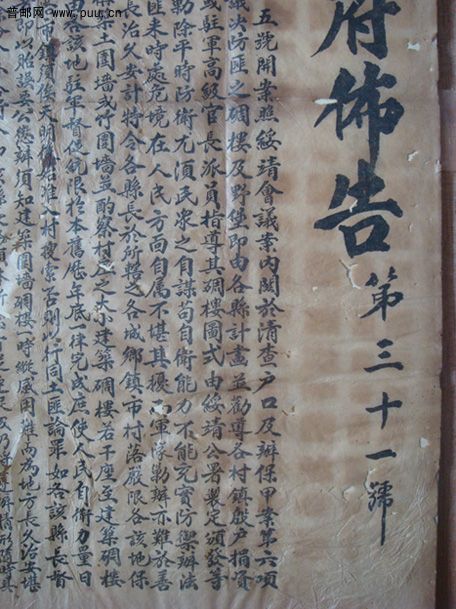 普邮网 www.puu.cn
府佈告
第三十一號
五號開案照綏靖會議案內關於清查户口及辦保甲案第六項
議決防匪之碉樓及野堡即由各縣計畫並勸導各村鎮殷户捐資
或駐軍高級官長派員指導其碉樓圖式由綏靖公署製定頒發等
勦除平時防衛尤須民眾之自謀苟自衛能力不能充實防禦辦法
匪未時處危境在人民方面自屬不堪其擾而軍隊勦辦亦難於善
長治久安計特令各縣長於所轄之各城鄉鎮市村落嚴限各該地保
築土圍墻或竹圍墻並酌察村庄之大小建築碉樓若干座至建築碉樓
由各該地駐軍督促統限於本舊歷年底一律完成庶使人民自衛力量日
市鎮須俟天明後始准入村搜索否則以行同土匪論罪如各該縣長督
即以貽誤要公懲辦須知建築圍墻碉樓一時縱感困難而為地方長久治安堪